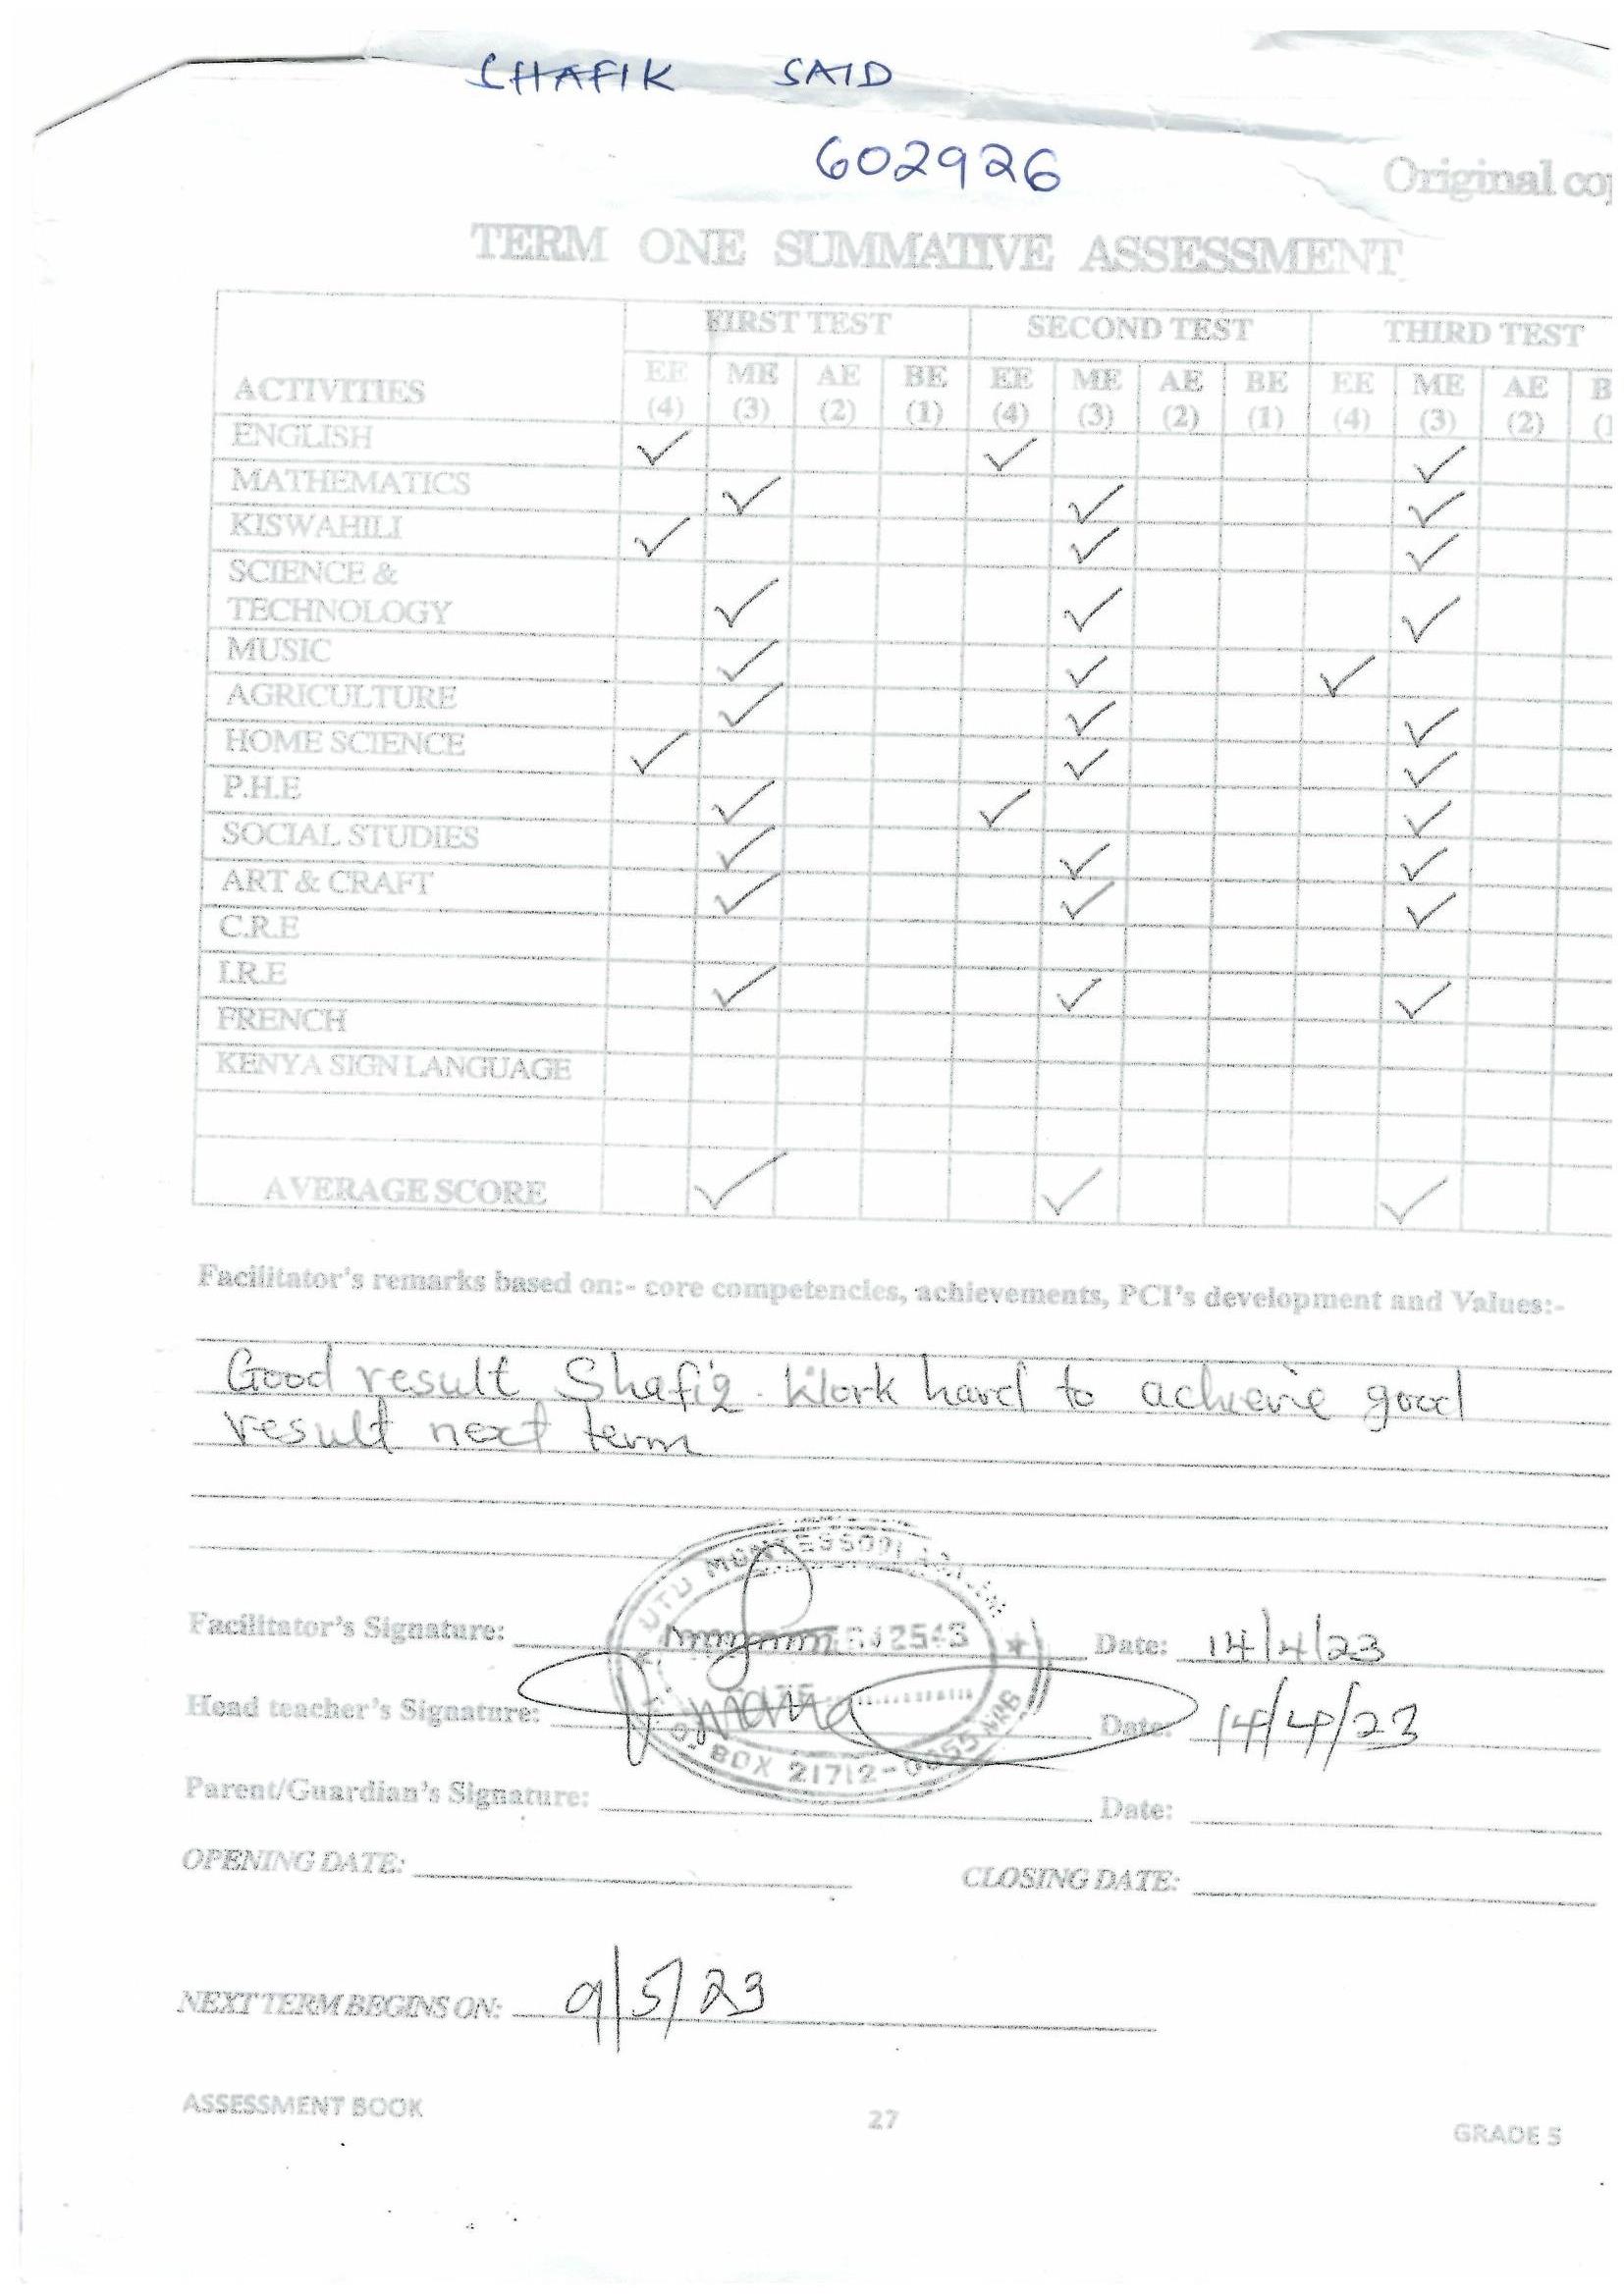 SHAFIK SAID
602926
Original cop
TERM ONE SUMMATIVE ASSESSMENT
ACTIVITIES FIRST TEST SECOND TEST THIRD TEST
EE ME AE BE EE ME AE BE EE ME AE B
(4) (3) (2) (1) (4) (3) (2) (1) (4) (3) (2) (1
ENGLISH ✓ ✓ ✓
MATHEMATICS ✓ ✓ ✓
KISWAHILI ✓ ✓ ✓
SCIENCE &
TECHNOLOGY ✓ ✓ ✓
MUSIC ✓ ✓ ✓
AGRICULTURE ✓ ✓ ✓
HOME SCIENCE ✓ ✓ ✓
P.H.E ✓ ✓ ✓
SOCIAL STUDIES ✓ ✓ ✓
ART & CRAFT ✓ ✓ ✓
C.R.E
I.R.E ✓ ✓ ✓
FRENCH
KENYA SIGN LANGUAGE
AVERAGE SCORE ✓ ✓ ✓
Facilitator's remarks based on:- core competencies, achievements, PCI's development and Values:-
Good result Shafiq. Work hard to achieve good
result next term
Facilitator's Signature: Date: 14/4/23
Head teacher's Signature: Date: 14/4/23
BOX 21712-
Parent/Guardian's Signature: Date:
OPENING DATE: CLOSING DATE:
NEXT TERM BEGINS ON: 9/5/23
ASSESSMENT BOOK 27 GRADE 5